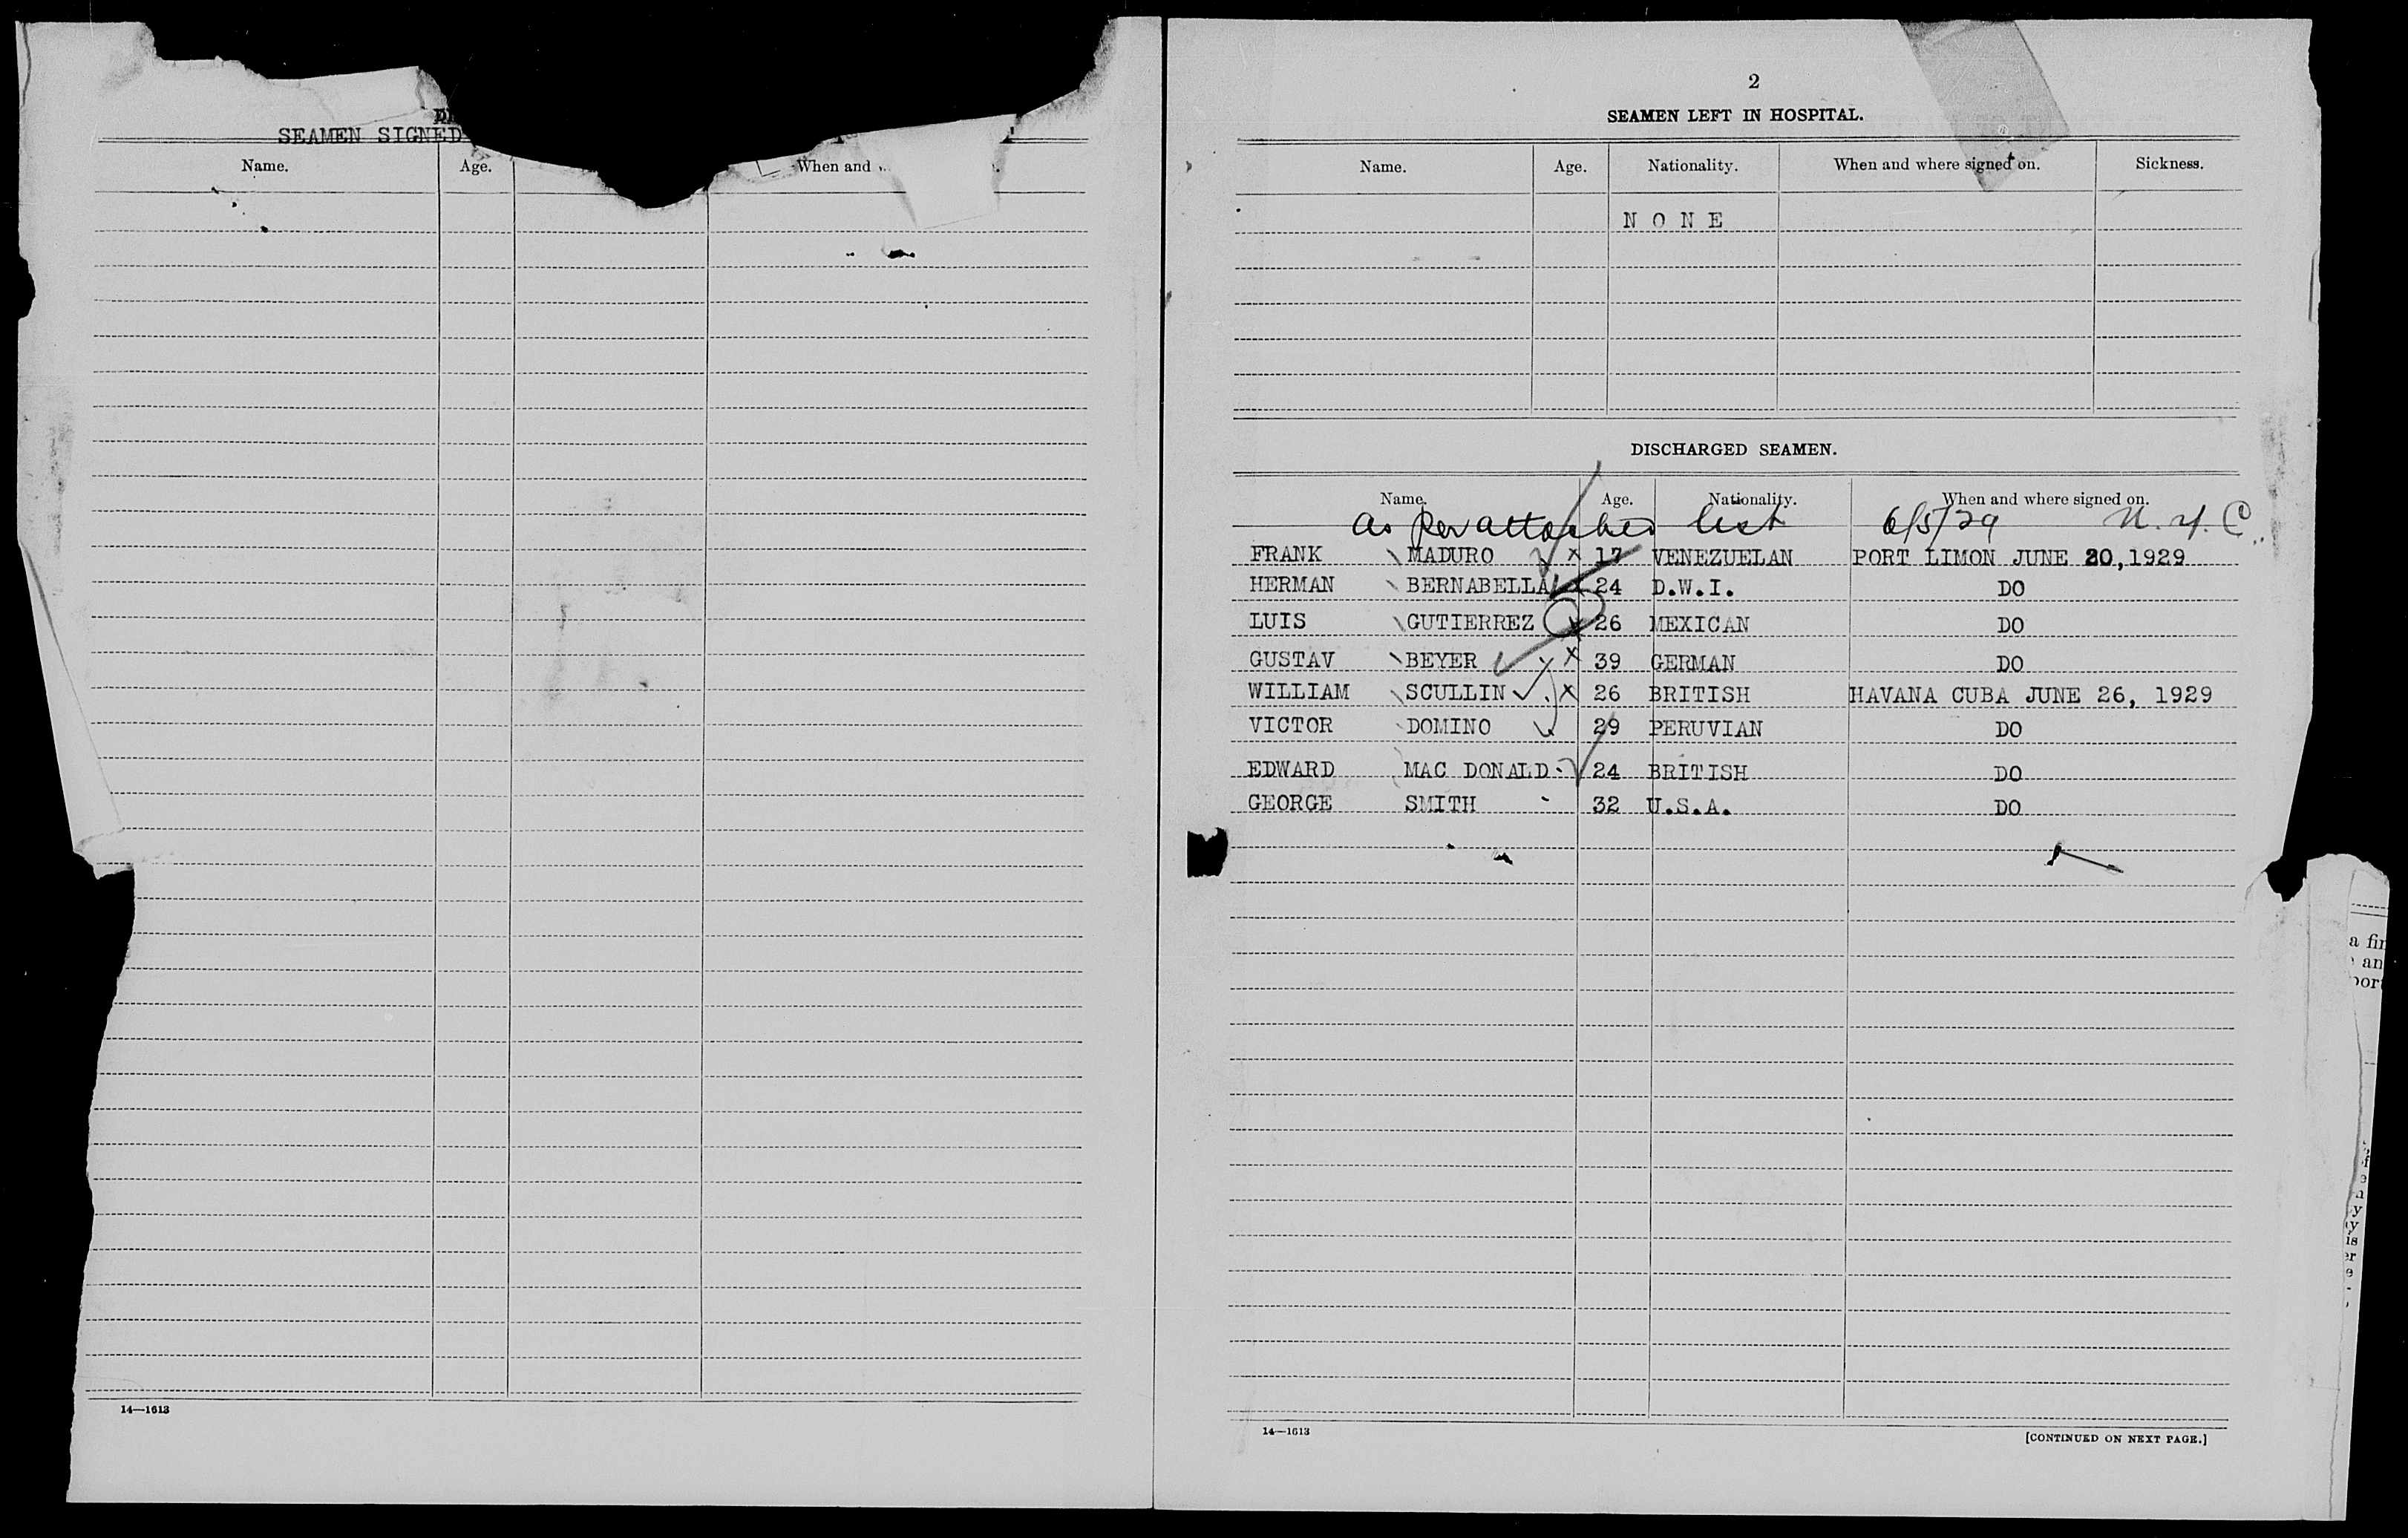 SEAMEN SIGNED
Name. Age. When and
14—1613
2
SEAMEN LEFT IN HOSPITAL.
Name. Age. Nationality. When and where signed on. Sickness.
N O N E
DISCHARGED SEAMEN.
Name. Age. Nationality. When and where signed on.
As per attached list 6/5/29 N. Y. C.
FRANK MADURO x 17 VENEZUELAN PORT LIMON JUNE 20,1929
HERMAN BERNABELLA x 24 D.W.I. DO
LUIS GUTIERREZ x 26 MEXICAN DO
GUSTAV BEYER x 39 GERMAN DO
WILLIAM SCULLIN x 26 BRITISH HAVANA CUBA JUNE 26, 1929
VICTOR DOMINO 29 PERUVIAN DO
EDWARD MAC DONALD 24 BRITISH DO
GEORGE SMITH 32 U.S.A. DO
14—1613
[CONTINUED ON NEXT PAGE.]